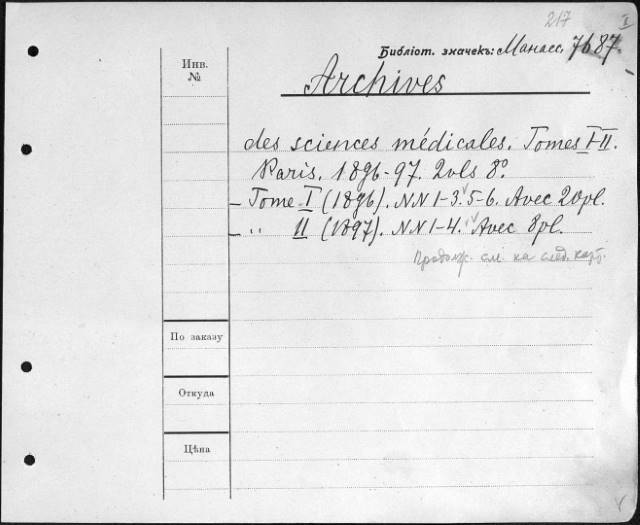 217 I
Библіот. значекъ: Манасс. 7687.
Инв.
№
Archives
des sciences médicales. Tomes I-II.
Paris. 1896-97. 2 vls 8°.
– Tome I (1896). NN 1-3. 5-6. Avec 20 pl.
– " II (1897). NN 1-4. Avec 8 pl.
Продолж. см. на след. карт.
По заказу
Откуда
Цѣна